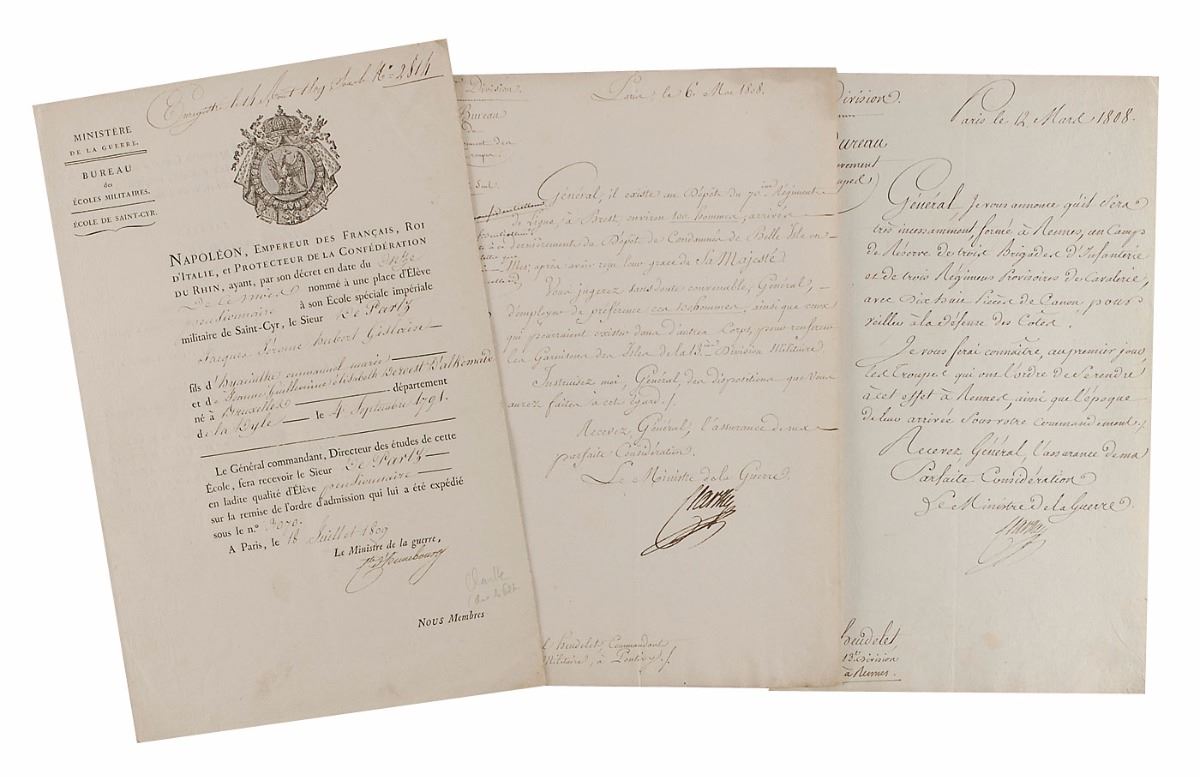 Enregistré le 14 Août 1809 N.° 2814
MINISTÈRE
DE LA GUERRE.
BUREAU
des
ÉCOLES MILITAIRES.
ÉCOLE DE SAINT-CYR.
NAPOLÉON, EMPEREUR DES FRANÇAIS, ROI
D'ITALIE, ET PROTECTEUR DE LA CONFÉDÉRATION
DU RHIN, ayant, par son décret en date du
nommé à une place d'Élève
pensionnaire à son École spéciale impériale
militaire de Saint-Cyr, le Sieur De Partz
Jacques Jérome hubert Ghislain
fils d'hyacinthe emmanuel marie
et de Jeanne Catherine Elisabeth
né à Bruxelles département
de la Dyle le 4 Septembre 1791.
Le Général commandant, Directeur des études de cette
École, fera recevoir le Sieur De Partz
en ladite qualité d'Élève pensionnaire
sur la remise de l'ordre d'admission qui lui a été expédié
sous le n.°
A Paris, le 18 Juillet 1809
Le Ministre de la guerre,
Nous Membres
Division.
Bureau
Paris, le 6 Mars 1808.
Général, il existe au Dépôt du 70eme Régiment
de Ligne, à Brest environ 100 hommes, arrivés
dernièrement du Dépôt de Condamnés de Belle Isle en-
Mer, après avoir reçu leur grace de Sa Majesté
Vous jugerez sans doute convenable, Général,
d'employer de préférence ces 100 hommes, ainsi que ceux
qui pourraient exister dans d'autres Corps, pour renforcer
les Garnisons des Isles de la 13eme Division Militaire
Instruisez moi, Général, des dispositions que vous
aurez faites à cet égard./.
Recevez Général, l'assurance de ma
parfaite Considération.
Le Ministre de la Guerre.
l heudelet, Commandant
Militaire, à Pontivy./.
Division.
Bureau
Paris le 12 Mars 1808.
Général Je vous annonce qu'il sera
très incessamment formé à Rennes, un Camp
de Réserve de trois Brigades d'Infanterie
et de trois Régimens Provisoires de Cavalerie,
avec Dix huit Pièces de Canon pour
veiller à la défense des Côtes.
Je vous ferai connaître, au premier jour,
les Troupes qui ont l'ordre de se rendre
à cet effet à Rennes, ainsi que l'époque
de leur arrivée sous votre commandement.
Recevez Général, l'assurance de ma
Parfaite Considération
Le Ministre de la Guerre.
heudelet
13e Division
à Rennes.